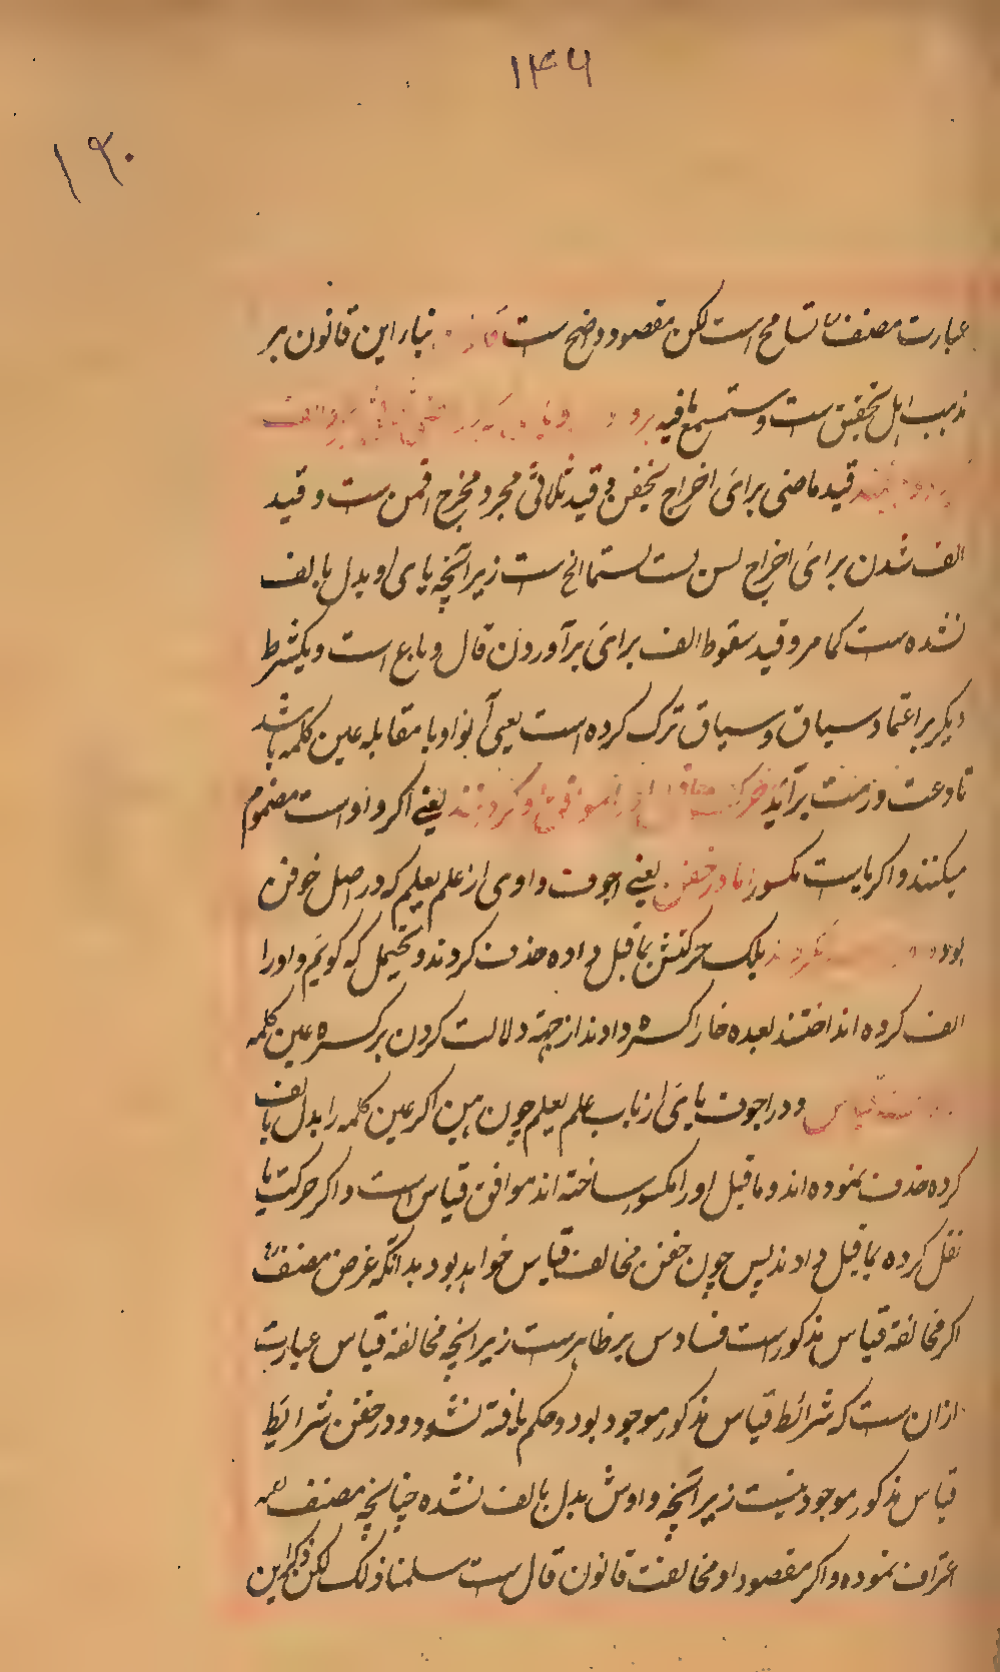 ۱۴۶
۱۹۰
عبارت مصنف تسامح است لکن مقصود واضح ست بناء این قانون بر
مذهب اهل تحقیق ست و ستسمع ما فیه
قید ماضی برای اخراج یخفن و قید ثلاثی مجرد مخرج اقمن ست و قید
الف شدن برای اخراج لسن لست لستما الخ ست زیرانچه یای او بدل بالف
نشده ست کما مر و قید سقوط الف برای برآوردن قال و باع است و یکشرط
دیگر بر اعتماد سیاق و سباق ترک کرده است یعنی آنواو یا مقابله عین کلمه باشد
تا دعت و رمت برآید حرکت یعنی اگر واو است مضموم
میکنند و اگر یاست مکسور اما در خفن یعنی اجوف واوی از علم یعلم که در اصل خوفن
بود بلکه حرکتش بماقبل داده حذف کردند و یحتمل که گویم واو را
الف کرده انداختند بعده خا را کسره دادند از جهة دلالت کردن بر کسره عین کلمه
و در اجوف یای از باب علم یعلم چون هبن اگر عین کلمه را بدل بالف
کرده حذف نموده اند و ماقبل او را مکسور ساخته اند موافق قیاس است و اگر حرکت یا
نقل کرده بماقبل دادند پس چون خفن مخالف قیاس خواهد بود بدانکه غرض مصنف
اگر مخالفة قیاس مذکور است فسادس بر ظاهر ست زیرانچه مخالفة قیاس عبارت
ازان ست که شرائط قیاس مذکور موجود بود و حکم یافته نشود و در خفن شرائط
قیاس مذکور موجود نیست زیرانچه واوش بدل بالف نشده چنانچه مصنف
اعتراف نموده و اگر مقصود او مخالفت قانون قال ست سلمنا ذلک لکن ذکر این